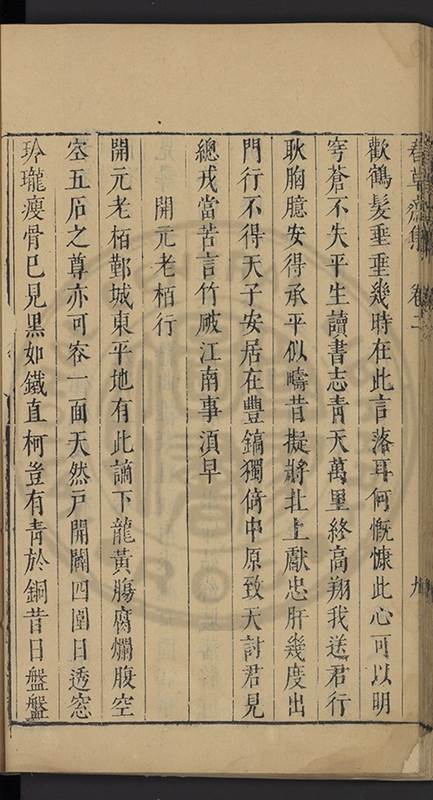 春草齋集 卷二 九
歡鶴髮垂垂幾時在此言落耳何慨慷此心可以明
穹蒼不失平生讀書志青天萬里終高翔我送君行
耿胸臆安得承平似疇昔擬將北上獻忠肝幾度出
門行不得天子安居在豐鎬獨倚中原致天討君見
總戎當苦言竹破江南事湏早
開元老栢行
開元老栢鄞城東平地有此謫下龍黃膓腐爛腹空
空五石之尊亦可容一面天然戶開闢四圍日透窓
玲瓏瘦骨巳見黑如鐵直柯豈有靑於銅昔日盤盤